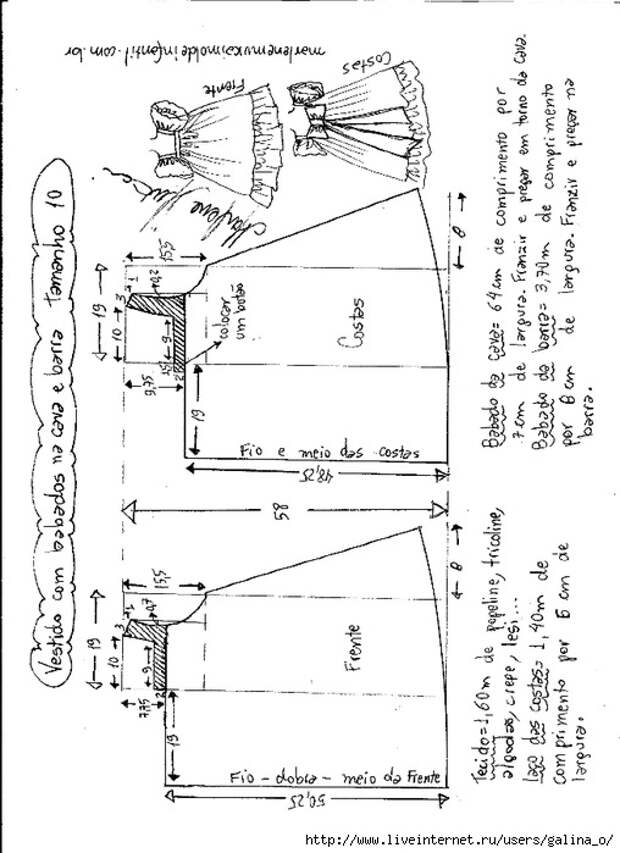 Vestido com babados na cava e barra Tamanho 10
19
10
3
1
15,5
0,7
9
2
7,75
19
Frente
Fio - dobra - meio da Frente
50,25
8
58
19
10
3
1
15,5
0,2
9
1,5
2
9,75
colocar
um botão
19
Costas
Fio e meio das costas
48,25
8
Marlene
Frente
Costas
marlenemukaimoldeinfantil.com.br
Tecido=1,60m de popeline, tricoline,
algodão, crepe, lesi...
laço das costas= 1,40m de
comprimento por 6 cm de
largura.
Babado da cava= 64cm de comprimento por
7cm de largura. Franzir e pregar em torno da cava.
Babado da barra= 3,70m de comprimento
por 8cm de largura. Franzir e pregar na
barra.
http://www.liveinternet.ru/users/galina_o/